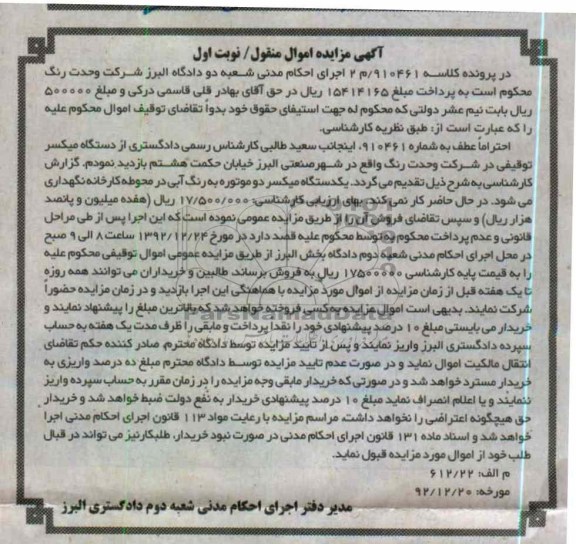 آگهی مزایده اموال منقول/ نوبت اول
در پرونده کلاسه ۹۱۰۴۶۱/م ۲ اجرای احکام مدنی شعبه دو دادگاه البرز شرکت وحدت رنگ
محکوم است به پرداخت مبلغ ۱۵۴۱۴۱۶۵ ریال در حق آقای بهادر قلی قاسمی درکی و مبلغ ۵۰۰۰۰۰
ریال بابت نیم عشر دولتی که محکوم له جهت استیفای حقوق خود بدواً تقاضای توقیف اموال محکوم علیه
را که عبارت است از: طبق نظریه کارشناسی.
احتراماً عطف به شماره ۹۱۰۴۶۱، اینجانب سعید طالبی کارشناس رسمی دادگستری از دستگاه میکسر
توقیفی در شرکت وحدت رنگ واقع در شهرصنعتی البرز خیابان حکمت هشتم بازدید نمودم. گزارش
کارشناسی به شرح ذیل تقدیم می گردد. یکدستگاه میکسر دو موتوره به رنگ آبی در محوطه کارخانه نگهداری
می شود. در حال حاضر کار نمی کند. بهای ارزیابی کارشناسی: ۱۷/۵۰۰/۰۰۰ ریال (هفده میلیون و پانصد
هزار ریال) و سپس تقاضای فروش آن را از طریق مزایده عمومی نموده است که این اجرا پس از طی مراحل
قانونی و عدم پرداخت محکوم به توسط محکوم علیه قصد دارد در مورخ ۱۳۹۲/۱۲/۲۴ ساعت ۸ الی ۹ صبح
در محل اجرای احکام مدنی شعبه دوم دادگاه بخش البرز از طریق مزایده عمومی اموال توقیفی محکوم علیه
را به قیمت پایه کارشناسی ۱۷۵۰۰۰۰۰ ریال به فروش برساند. طالبین و خریداران می توانند همه روزه
تا یک هفته قبل از زمان مزایده از اموال مورد مزایده با هماهنگی این اجرا بازدید و در زمان مزایده حضوراً
شرکت نمایند. بدیهی است اموال مزایده به کسی فروخته خواهد شد که بالاترین مبلغ را پیشنهاد نمایند و
خریدار می بایستی مبلغ ۱۰ درصد پیشنهادی خود را نقدا پرداخت و مابقی را ظرف مدت یک هفته به حساب
سپرده دادگستری البرز واریز نمایند و پس از تایید مزایده توسط دادگاه محترم، صادر کننده حکم تقاضای
انتقال مالکیت اموال نماید و در صورت عدم تایید مزایده توسط دادگاه محترم مبلغ ده درصد واریزی به
خریدار مسترد خواهد شد و در صورتی که خریدار مابقی وجه مزایده را در زمان مقرر به حساب سپرده واریز
ننمایند و یا اعلام انصراف نماید مبلغ ۱۰ درصد پیشنهادی خریدار به نفع دولت ضبط خواهد شد و خریدار
حق هیچگونه اعتراضی را نخواهد داشت. مراسم مزایده با رعایت مواد ۱۱۳ قانون اجرای احکام مدنی اجرا
خواهد شد و اسناد ماده ۱۳۱ قانون اجرای احکام مدنی در صورت نبود خریدار، طلبکار نیز می تواند در قبال
طلب خود از اموال مورد مزایده قبول نماید.
م الف: ۶۱۲/۲۲
مورخه: ۹۲/۱۲/۲۰
مدیر دفتر اجرای احکام مدنی شعبه دوم دادگستری البرز